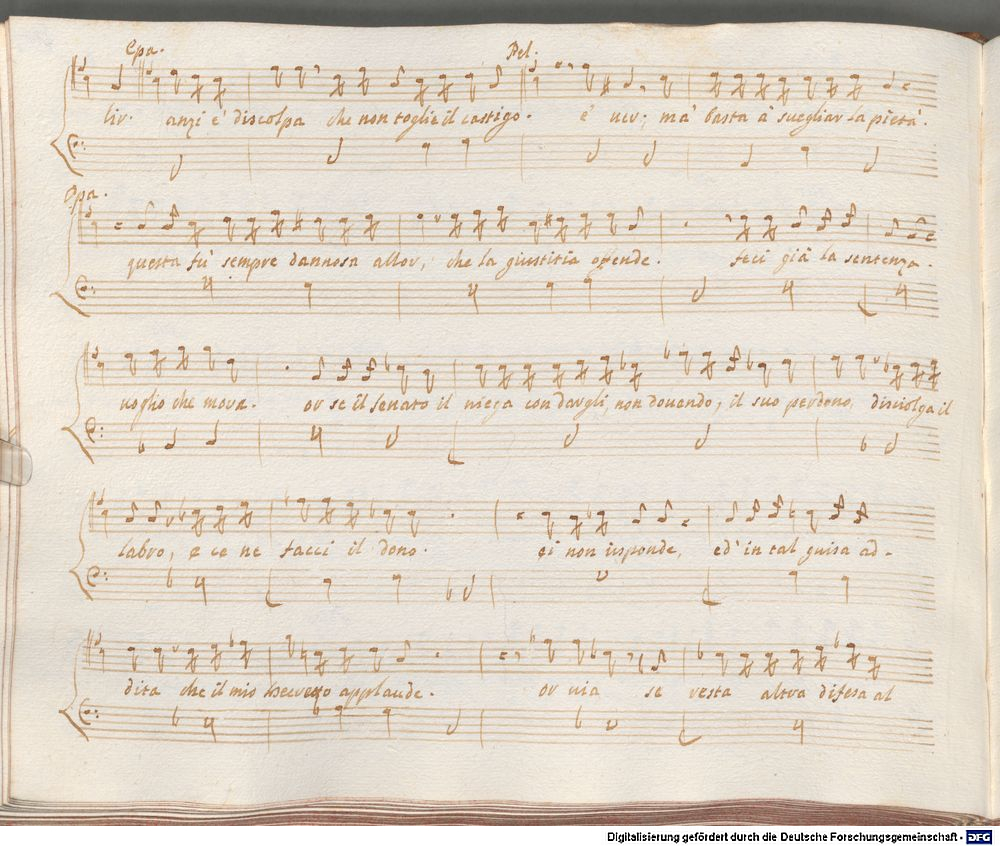 Epa. Pel.
lir. anzi è discolpa che non toglie il castigo. è ver; mà basta à suegliar la pietà.
Epa.
questa fù sempre dannosa allor, che la giustitia offende. feci già la sentenza.
uoglio che mora. or se il senato il niega con dargli, non douendo, il suo perdono, disciolga il
labro, e ce ne facci il dono. ei non risponde, ed' in tal guisa ad-
dita che il mio decreto applaude. or uia se resta altra difesa al
Digitalisierung gefördert durch die Deutsche Forschungsgemeinschaft - DFG